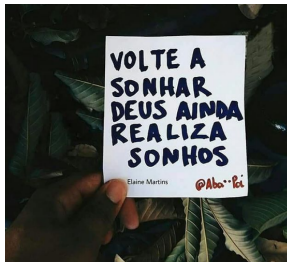 VOLTE A
SONHAR
DEUS AINDA
REALIZA
SONHOS
Elaine Martins
@Aba..Pai